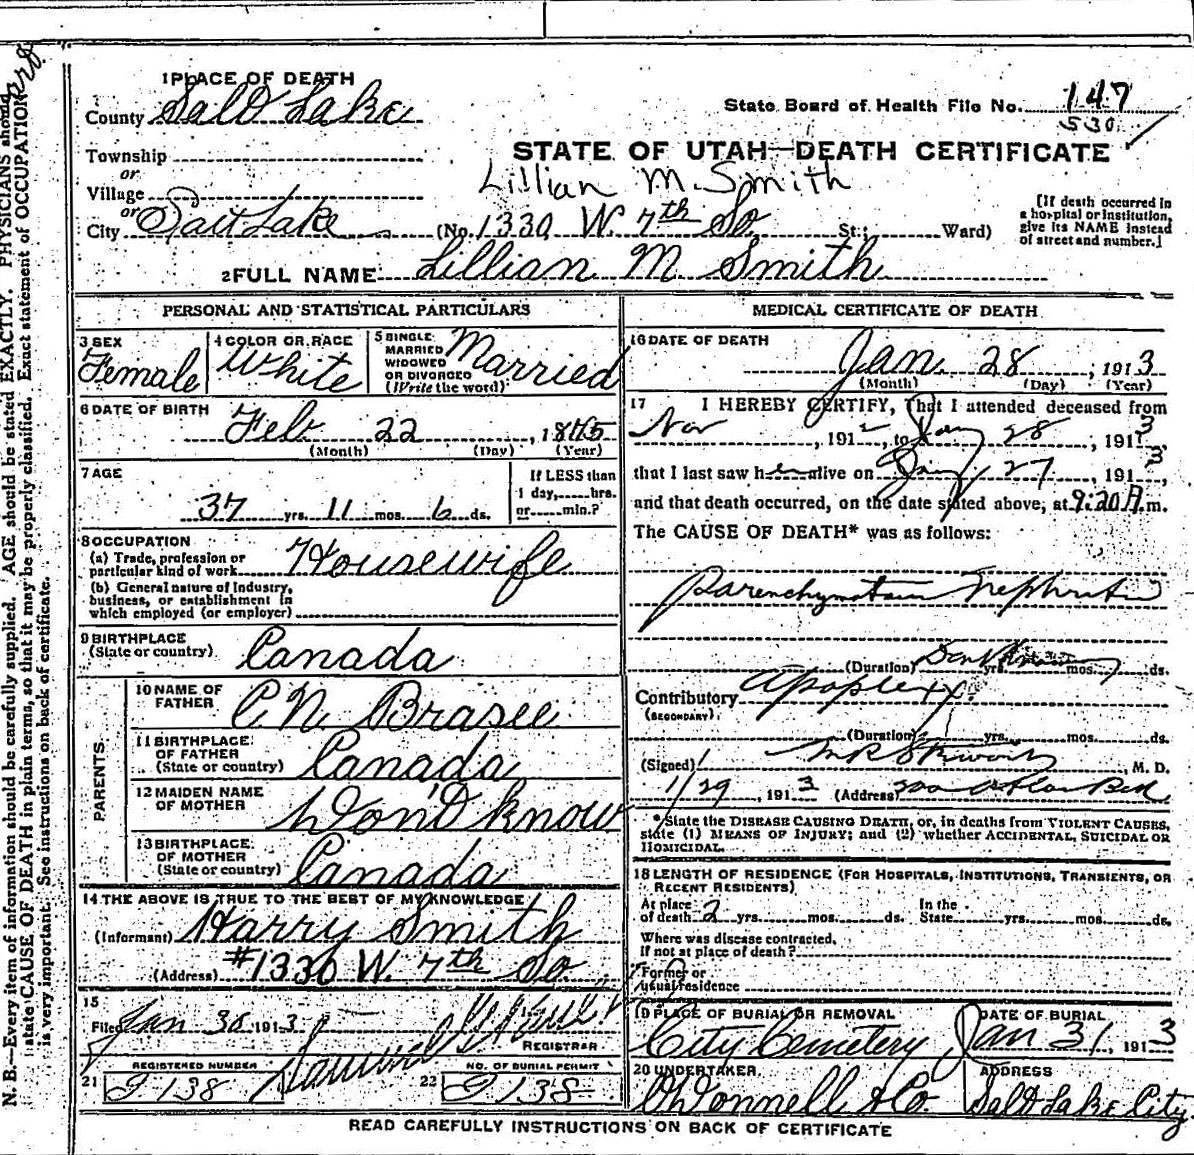 1 PLACE OF DEATH
County Salt Lake
State Board of Health File No. 147
530
Township
or
STATE OF UTAH—DEATH CERTIFICATE
Village
or
Lillian M. Smith
City Salt Lake (No. 1330 W. 7th So St.; Ward)
[If death occurred in a hospital or institution, give its NAME instead of street and number.]
2 FULL NAME Lillian M Smith
PERSONAL AND STATISTICAL PARTICULARS
3 SEX
Female
4 COLOR OR RACE
White
5 SINGLE MARRIED WIDOWED OR DIVORCED (Write the word)
Married
6 DATE OF BIRTH
Feb 22, 1875
(Month) (Day) (Year)
7 AGE
37 yrs. 11 mos. 6 ds.
If LESS than 1 day, hrs. or min.?
8 OCCUPATION
(a) Trade, profession or particular kind of work Housewife
(b) General nature of industry, business, or establishment in which employed (or employer)
9 BIRTHPLACE
(State or country) Canada
PARENTS
10 NAME OF FATHER C N Brasee
11 BIRTHPLACE OF FATHER (State or country) Canada
12 MAIDEN NAME OF MOTHER Don't know
13 BIRTHPLACE OF MOTHER (State or country) Canada
14 THE ABOVE IS TRUE TO THE BEST OF MY KNOWLEDGE
(Informant) Harry Smith
(Address) #1330 W. 7th So
15
Filed Jan 30 1913
REGISTRAR
REGISTERED NUMBER
21 138
NO. OF BURIAL PERMIT
22 138
MEDICAL CERTIFICATE OF DEATH
16 DATE OF DEATH
Jan. 28, 1913
(Month) (Day) (Year)
17 I HEREBY CERTIFY, That I attended deceased from
Nov, 1912, to Jan 28, 1913,
that I last saw her alive on Jan, 27, 1913,
and that death occurred, on the date stated above, at 9:20 A.m.
The CAUSE OF DEATH* was as follows:
Parenchymatous Nephritis
(Duration) yrs. mos. ds.
Contributory Apoplexy.
(SECONDARY)
(Duration) yrs. mos. ds.
(Signed) M. D.
1/29, 1913 (Address)
*State the DISEASE CAUSING DEATH, or, in deaths from VIOLENT CAUSES, state (1) MEANS OF INJURY; and (2) whether ACCIDENTAL, SUICIDAL OR HOMICIDAL.
18 LENGTH OF RESIDENCE (FOR HOSPITALS, INSTITUTIONS, TRANSIENTS, OR RECENT RESIDENTS)
At place of death 2 yrs. mos. ds. In the State yrs. mos. ds.
Where was disease contracted, If not at place of death?
Former or usual residence
19 PLACE OF BURIAL OR REMOVAL
City Cemetery
DATE OF BURIAL
Jan 31, 1913
20 UNDERTAKER
O'Donnell & Co.
ADDRESS
Salt Lake City
READ CAREFULLY INSTRUCTIONS ON BACK OF CERTIFICATE
N. B.—Every item of information should be carefully supplied. AGE should be stated EXACTLY. PHYSICIANS should
state CAUSE OF DEATH in plain terms, so that it may be properly classified. Exact statement of OCCUPATION
is very important. See instructions on back of certificate.